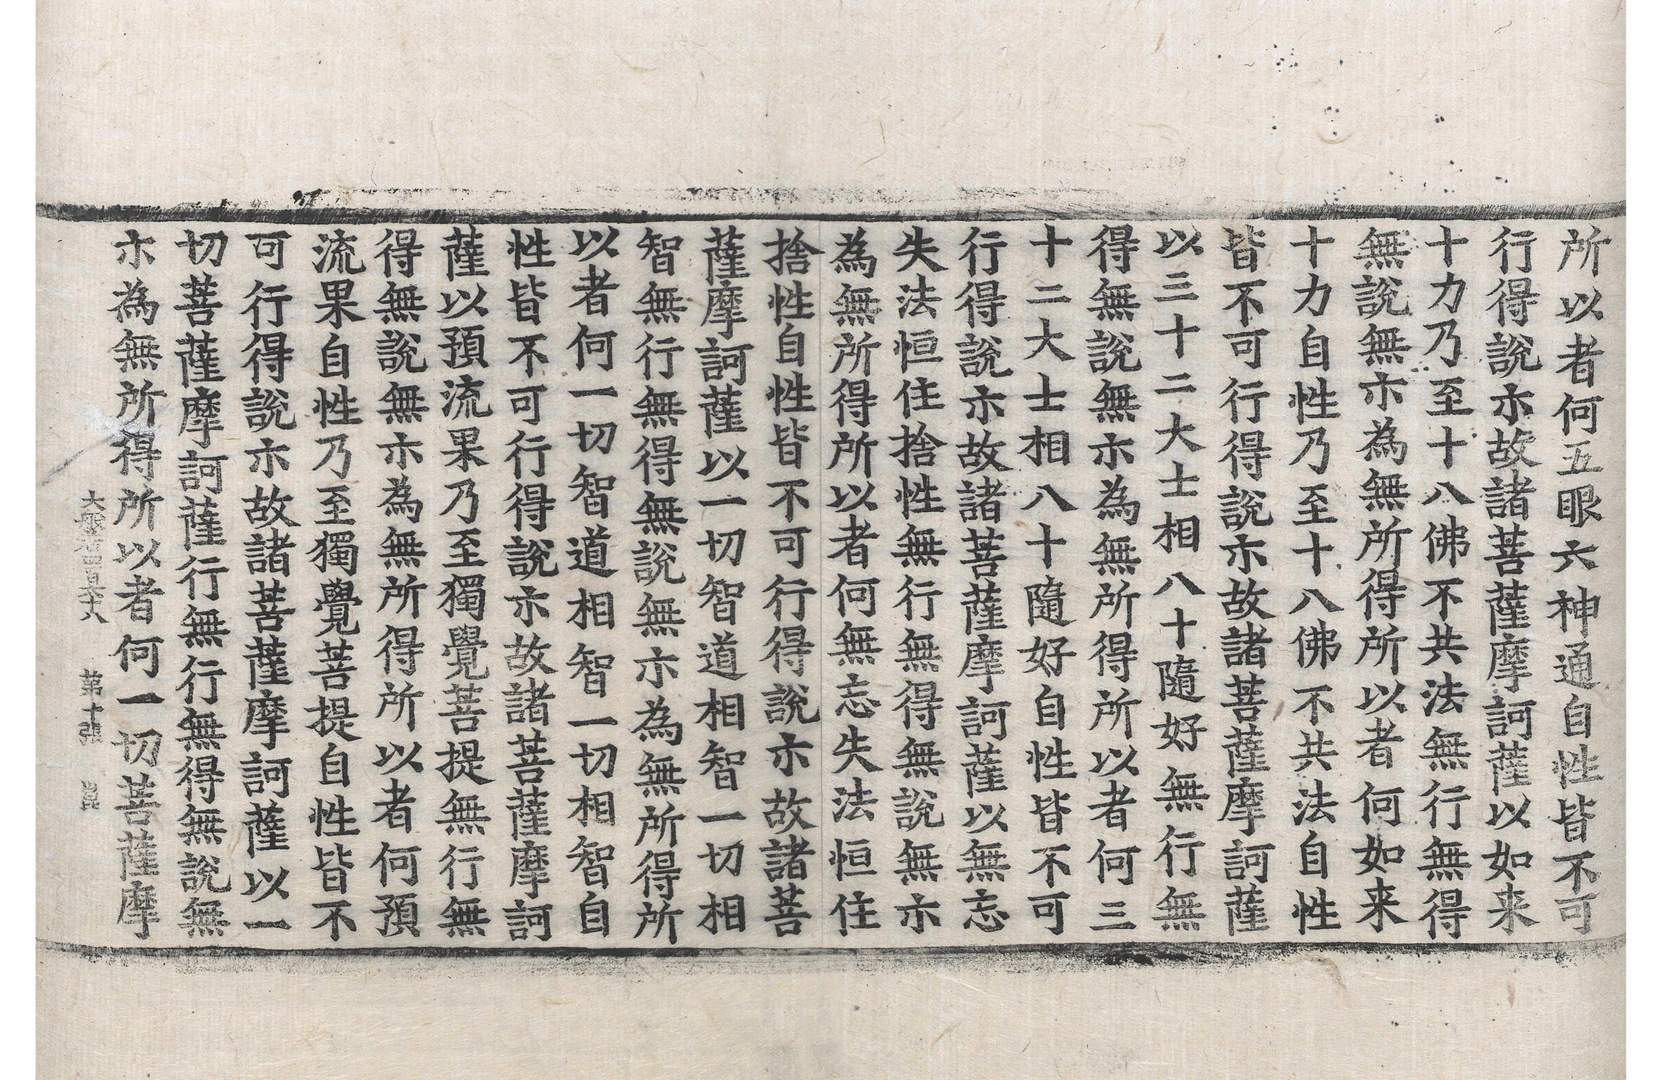 所以者何五眼六神通自性皆不可
行得說示故諸菩薩摩訶薩以如来
十力乃至十八佛不共法無行無得
無說無示為無所得所以者何如来
十力自性乃至十八佛不共法自性
皆不可行得說示故諸菩薩摩訶薩
以三十二大士相八十隨好無行無
得無說無示為無所得所以者何三
十二大士相八十隨好自性皆不可
行得說示故諸菩薩摩訶薩以無忘
失法恒住捨性無行無得無說無示
為無所得所以者何無忘失法恒住
捨性自性皆不可行得說示故諸菩
薩摩訶薩以一切智道相智一切相
智無行無得無說無示為無所得所
以者何一切智道相智一切相智自
性皆不可行得說示故諸菩薩摩訶
薩以預流果乃至獨覺菩提無行無
得無說無示為無所得所以者何預
流果自性乃至獨覺菩提自性皆不
可行得說示故諸菩薩摩訶薩以一
切菩薩摩訶薩行無行無得無說無
示為無所得所以者何一切菩薩摩
大般若四百六十八 第十張 崑